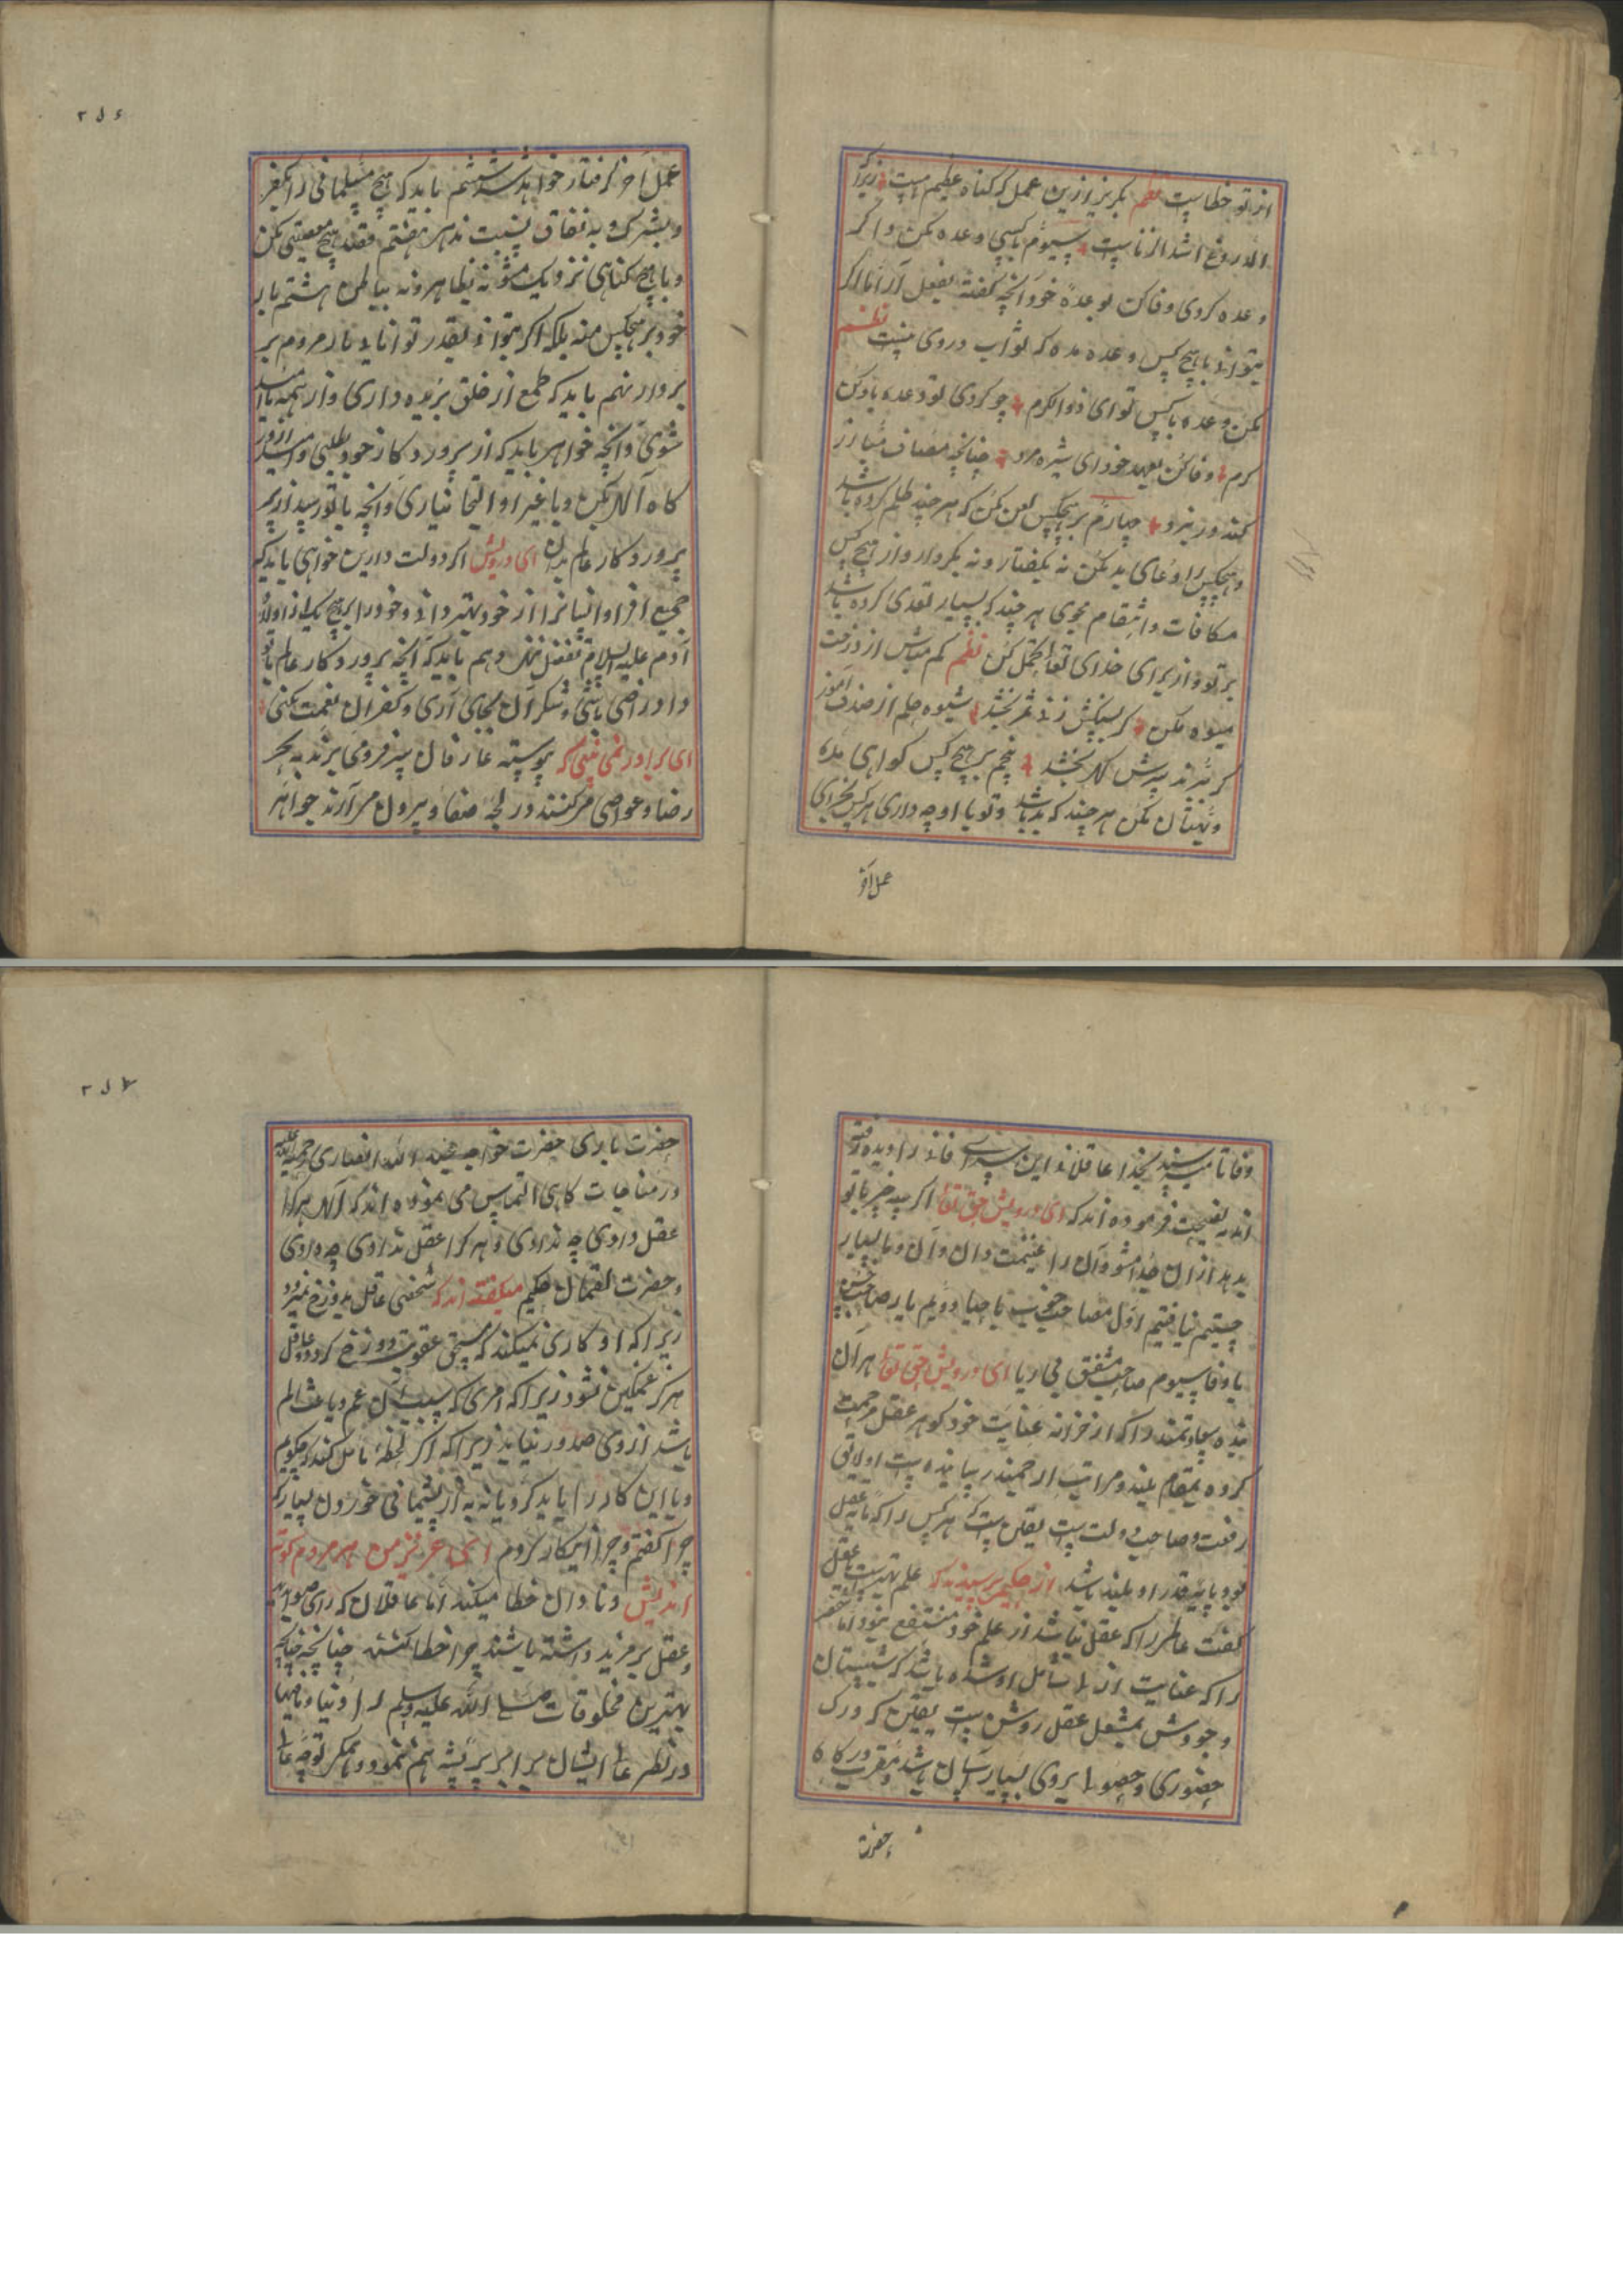 از تو خطاست نظم بگریز ازین عمل که گناه عظیم هست زیرا که
الدروغ اشد الزناست سیوم با کسی وعده مکن و اگر
وعده کردی وفا کن بوعدهٔ خود آنچه گفتهٔ بفعل آر اما اگر
بتوانی با هیچ کس وعده مده که ثواب دروی نیست نظم
مکن وعده با کس تو ای ذو الکرم چو کردی تو وعده بادکن
کرم وفا کن بعهد خود ای شیره مرد چنانچه مصاف مبارز
کند در نبرد چهارم بر هیچکس لعن مکن که هر چند ظلم کرده باشد
و هیچکس را دعای بد مکن نه بگفتار و نه بکردار و از هیچ کس
مکافات و انتقام مجوی هر چند که بسیار تعدی کرده باشد
بر تو و از برای خدای تعالی تحمل کن نظم کم مباش از درخت
میوه مکن گر سنگش زنی ثمر بخشد شیوه حلم از صدف آموز
گر ببرند سرش گهر بخشد پنجم بر هیچ کس گواهی مده
و بهتان مکن هر چند که بد باشد و تو با او چه داری هر کس بجزای
عمل آخر
۲۵۶
عمل آخر گرفتار خواهد شد ششم باید که هیچ مسلمانی را بکفر
و بشرک و به نفاق نسبت ندهی هفتم قصد هیچ معصیتی مکن
و با هیچ گناهی نزدیک مشو نه بظاهر و نه بباطن هشتم بار
خود بر هیچکس منه بلکه اگر بتوانی بقدر توانایی بار مردم بر
بردار نهم باید که طمع از خلق بریده داری و از همه ناامید
شوی و آنچه خواهی باید که از پروردگار خود طلبی و امید ازو
گاه آلاء مکن و با غیر او التجا نیاری و آنچه با تو رسید از
پروردگار عالم بدان ای درویش اگر دولت دارین خواهی باید که
جمیع افراد انسانرا از خود بهتر دانی و خود را بر هیچ یک از اولاد
آدم علیه السلام تفضل ننهی و هم باید که آنچه پروردگار عالم با تو
داد راضی باشی و شکر آن بجای آری و کفران نعمت نکنی
ای برادر نمی بینی که پیوسته عارفان سر فرو می برند به بحر
رضا و غواصی میکنند در لجهٔ صفا و بیرون می آرند جواهر
وفا تا میرسند بخدا عاقلانی این سرای فانی را دیده رفته
اند به نصیحت فرموده اند که ای درویش حق تعالی اگر سه چیز با تو
بدهد از ان جدا مشو و آن را غنیمت دان و آن و ما بسیار
جستیم نیافتیم اول مصاحب خوب با حیا دویم یار صاحب حسن
با وفا سیوم صاحب مشفق بی ریا ای درویش حق تعالی هر آن
بنده سعادتمند را که از خزانه عنایت خود گوهر عقل مرحمت
کرده بمقام بلند و مراتب ارجمند رسانیده است او لایق
رفعت و صاحب دولت است یقین است که هر کس را که مایه عقل
بود پایه قدر او بلند باشد از حکیم پرسیدند که علم بهتر است یا عقل
گفت عالم را که عقل نباشد از علم خود منتفع نبود اما شخصی
را که عنایت ازلی شامل او شده باشد که شبستان
وجودش بمشعل عقل روشن است یقین که درک
حضوری و حصولی بروی بسیار آسان باشد و مقرب درگاه
حضرت
۲۵۷
حضرت باری حضرت خواجه عبد الله انصاری رحمة الله علیه
در مناجات گاهی التماس می نموده اند که الهی هر کرا
عقل دادی چه ندادی و هر کرا عقل ندادی چه دادی
و حضرت لقمان حکیم میگفته اند که شخصی عاقل بدوزخ نمیرود
زیرا که او کاری نمیکند که مستحق عقوبت دوزخ گردد و عاقل
هرگز غمگین نشود زیرا که امری که سبب آن غم و باعث الم
باشد از وی صدور نیاید زیرا که اگر لحظهٔ تأمل کند که چگویم
و یا این کار را باید کرد یا نه به از پشیمانی خوردن بسیار که
چرا گفتم و چرا اینکار کردم ای عزیز من هر مردم کوته
اندیش و نادان خطا میکند اما عاقلان که رای صواب
و عقل بر مزید داشته باشند چرا خطا کنند چنانچه
بهترین مخلوقات صلی الله علیه وسلم را دنیا و مافیها
در نظر عالی ایشان برابر پر پشه هم ننمود و همگی توجه عالی